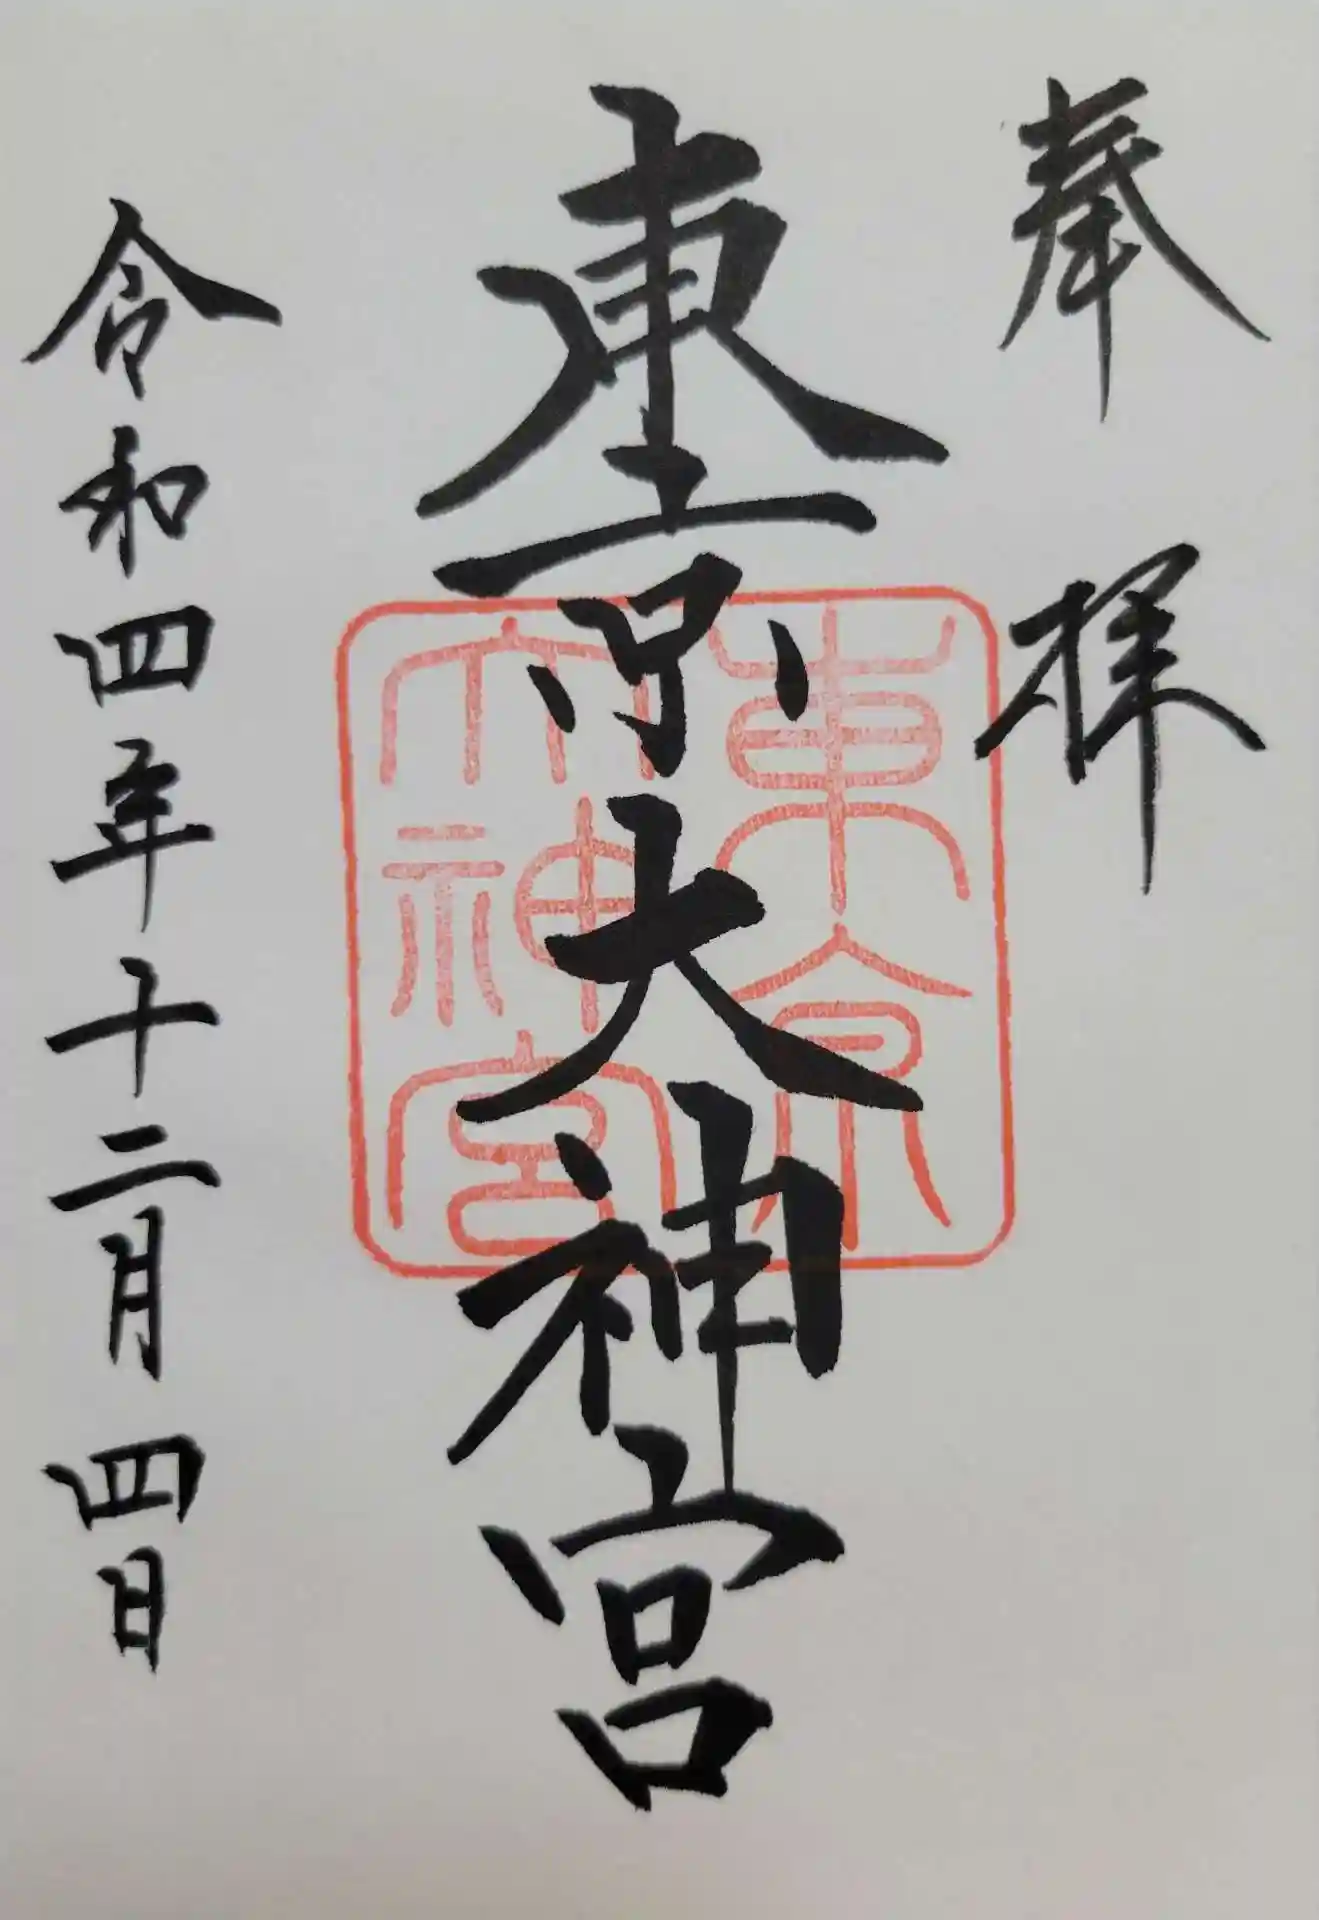 奉拝
東京大神宮
東京
大神宮
令和四年十二月四日